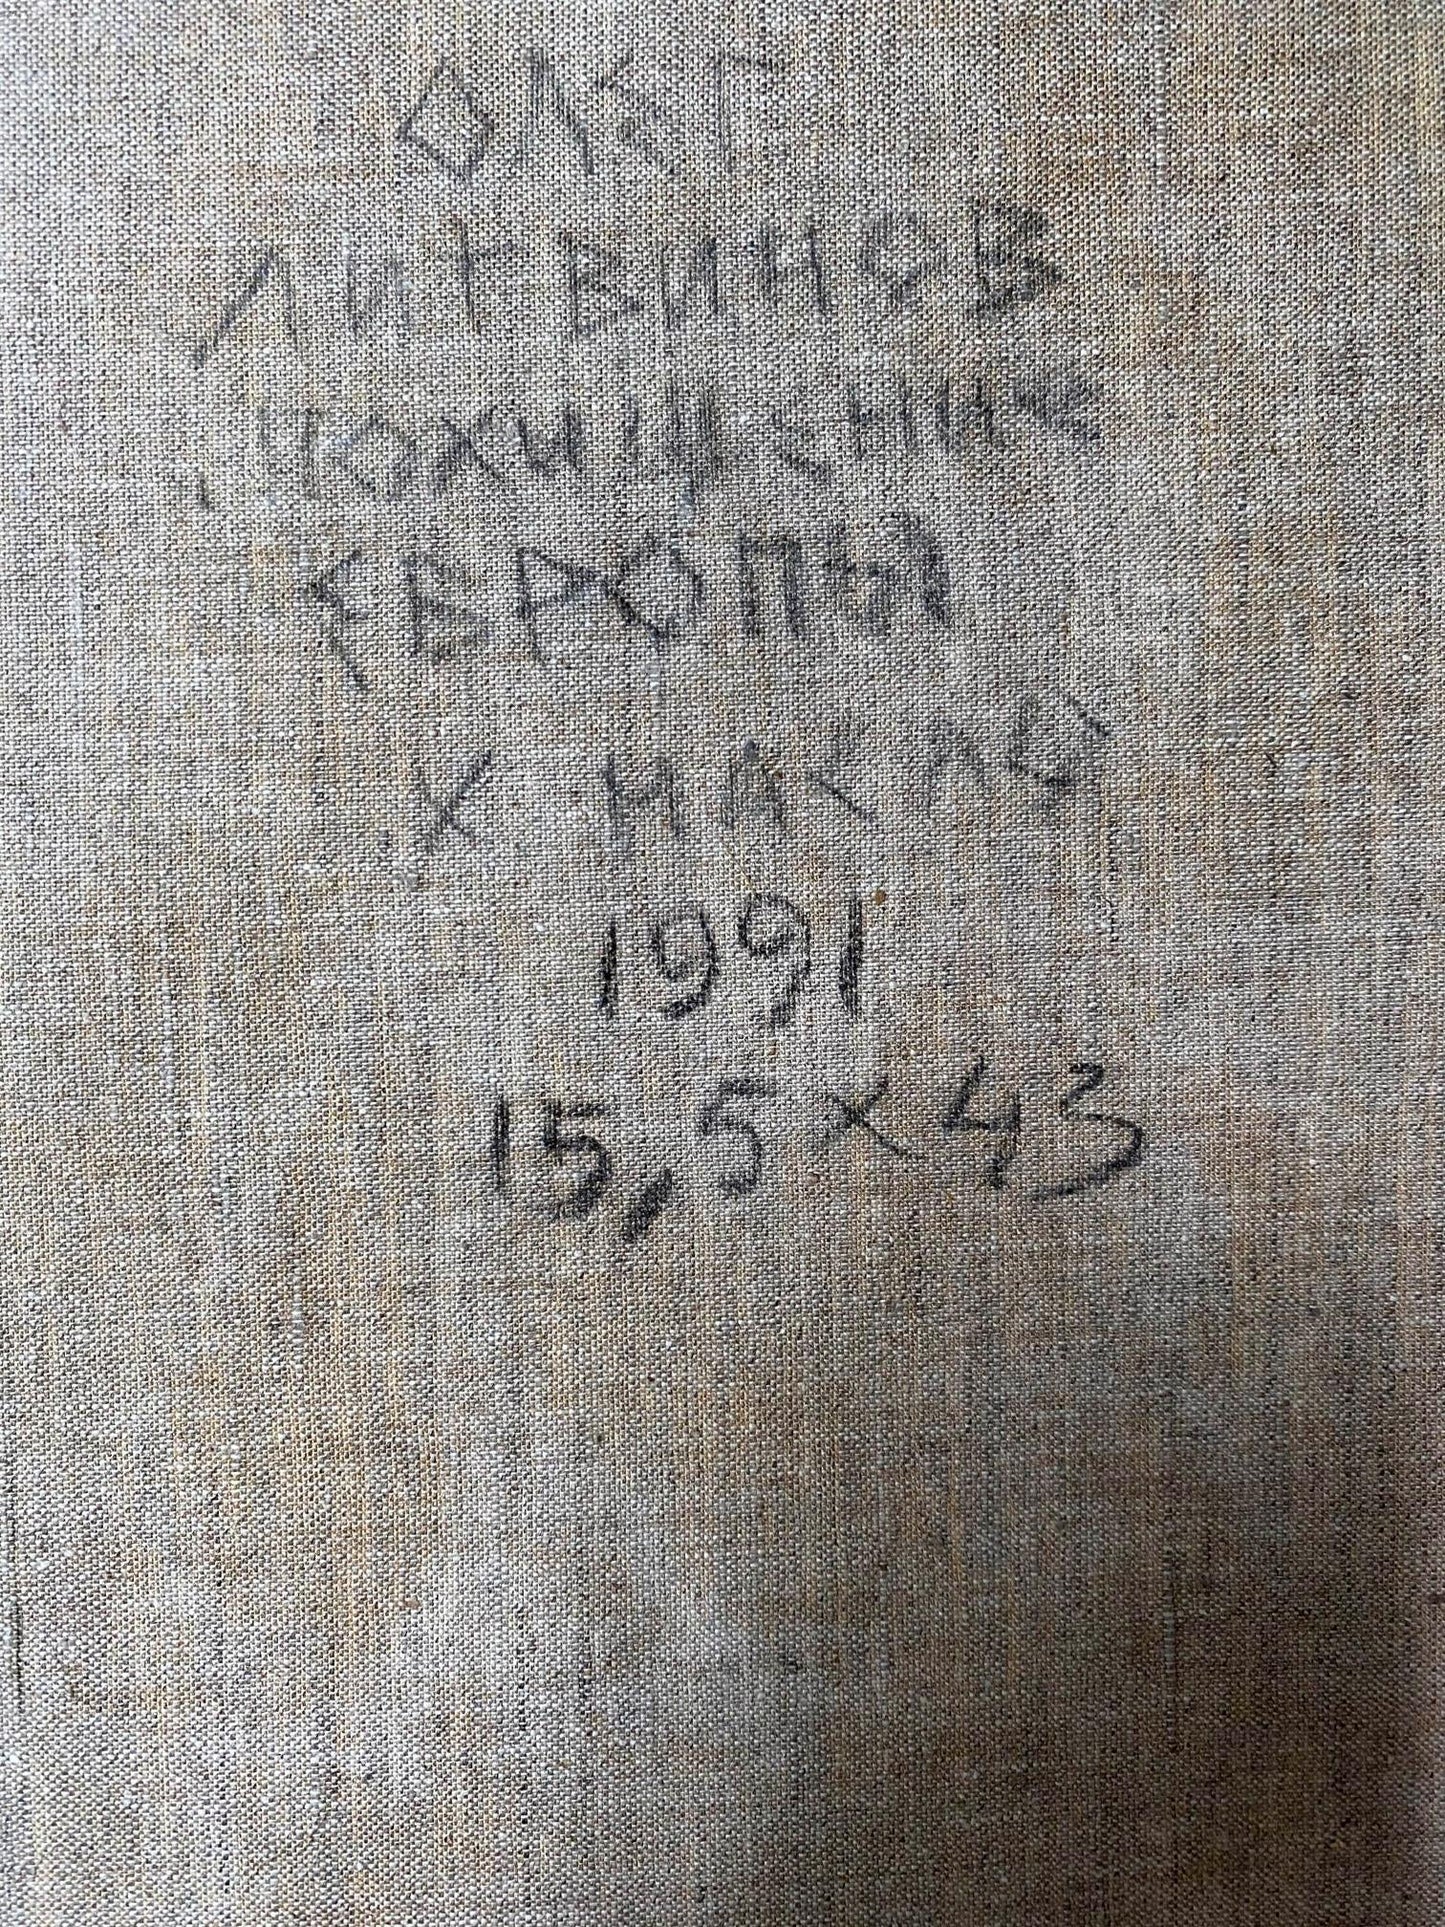 ОЛЕГ
ЛИТВИНОВ
„ПОХИЩЕНИЕ
ЕВРОПЫ"
Х. МАСЛО
1991
15,5 х 43